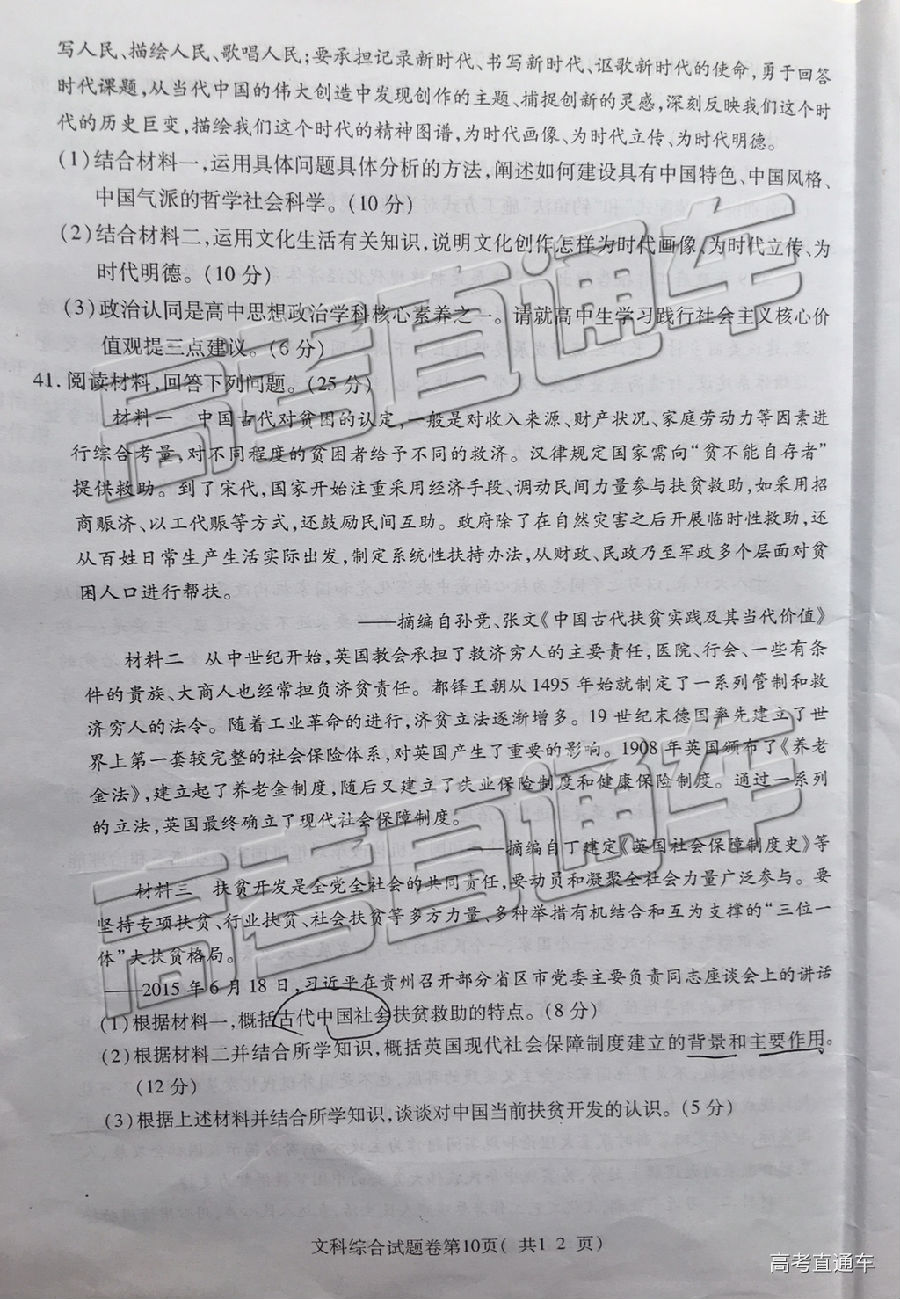 写人民、描绘人民、歌唱人民;要承担记录新时代、书写新时代、讴歌新时代的使命,勇于回答
时代课题,从当代中国的伟大创造中发现创作的主题、捕捉创新的灵感,深刻反映我们这个时
代的历史巨变,描绘我们这个时代的精神图谱,为时代画像、为时代立传、为时代明德。
(1)结合材料一,运用具体问题具体分析的方法,阐述如何建设具有中国特色、中国风格、
中国气派的哲学社会科学。(10分)
(2)结合材料二,运用文化生活有关知识,说明文化创作怎样为时代画像、为时代立传、为
时代明德。(10分)
(3)政治认同是高中思想政治学科核心素养之一。请就高中生学习践行社会主义核心价
值观提三点建议。(6分)
41.阅读材料,回答下列问题。(25分)
材料一 中国古代对贫困的认定,一般是对收入来源、财产状况、家庭劳动力等因素进
行综合考量,对不同程度的贫困者给予不同的救济。汉律规定国家需向“贫不能自存者”
提供救助。到了宋代,国家开始注重采用经济手段、调动民间力量参与扶贫救助,如采用招
商赈济、以工代赈等方式,还鼓励民间互助。政府除了在自然灾害之后开展临时性救助,还
从百姓日常生产生活实际出发,制定系统性扶持办法,从财政、民政乃至军政多个层面对贫
困人口进行帮扶。
——摘编自孙竞、张文《中国古代扶贫实践及其当代价值》
材料二 从中世纪开始,英国教会承担了救济穷人的主要责任,医院、行会、一些有条
件的贵族、大商人也经常担负济贫责任。都铎王朝从1495年始就制定了一系列管制和救
济穷人的法令。随着工业革命的进行,济贫立法逐渐增多。19世纪末德国率先建立了世
界上第一套较完整的社会保险体系,对英国产生了重要的影响。1908年英国颁布了《养老
金法》,建立起了养老金制度,随后又建立了失业保险制度和健康保险制度。通过一系列
的立法,英国最终确立了现代社会保障制度。
——摘编自丁建定《英国社会保障制度史》等
材料三 扶贫开发是全党全社会的共同责任,要动员和凝聚全社会力量广泛参与。要
坚持专项扶贫、行业扶贫、社会扶贫等多方力量、多种举措有机结合和互为支撑的“三位一
体”大扶贫格局。
——2015年6月18日,习近平在贵州召开部分省区市党委主要负责同志座谈会上的讲话
(1)根据材料一,概括古代中国社会扶贫救助的特点。(8分)
(2)根据材料二并结合所学知识,概括英国现代社会保障制度建立的背景和主要作用。
(12分)
(3)根据上述材料并结合所学知识,谈谈对中国当前扶贫开发的认识。(5分)
文科综合试题卷第10页( 共1 2 页)
高考直通车
高考直通车
高考直通车